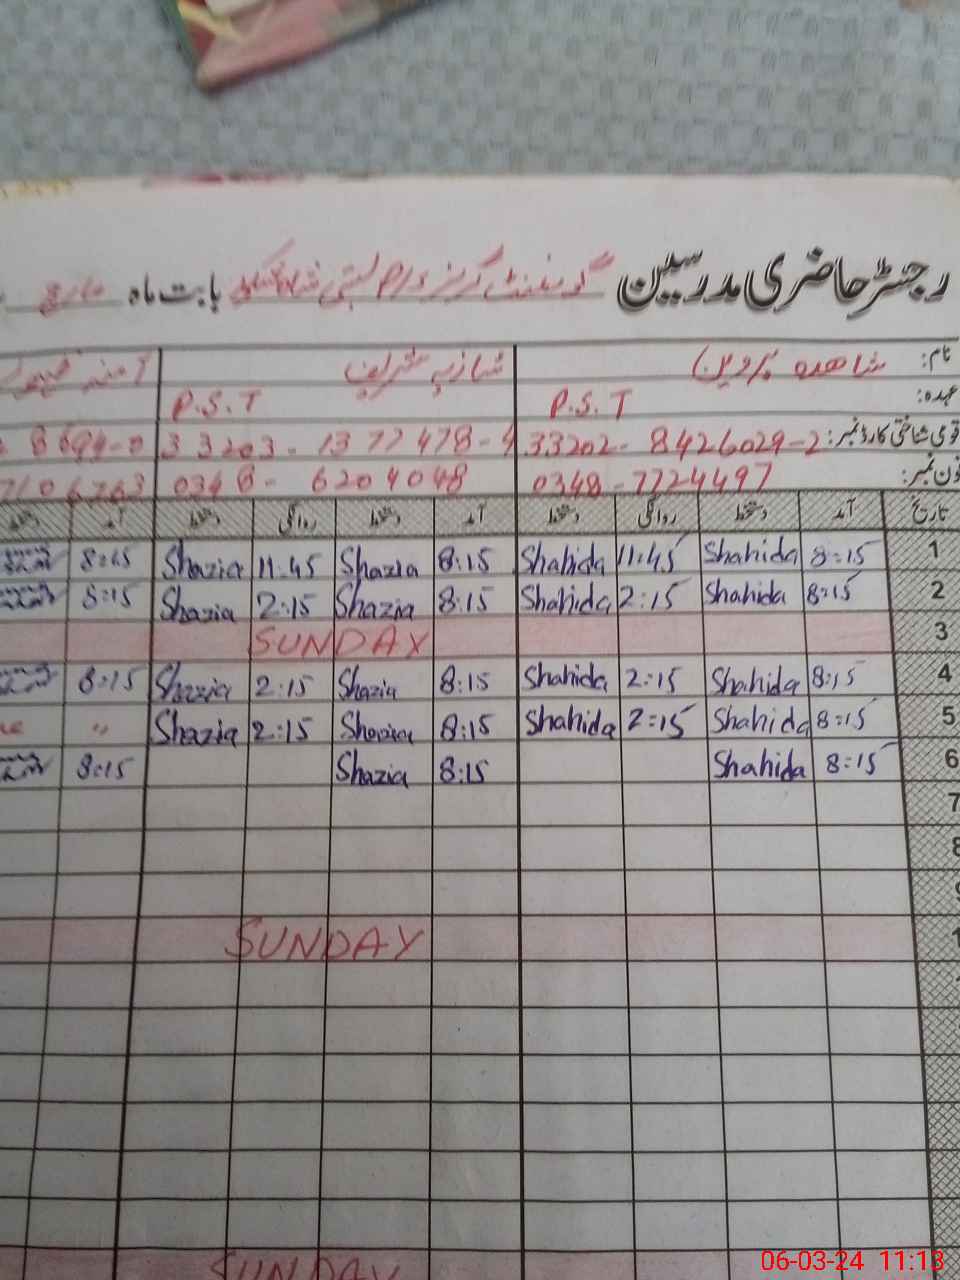 رجسٹر حاضری مدرسین گورنمنٹ گرلز بابت ماہ مارچ
نام: شاھدہ پروین شازیہ شریف آمنہ
عہدہ: P.S.T P.S.T
قومی شناختی کارڈ نمبر: 33202-8426029-2 33203-1377478-4 8694-0
فون نمبر: 0348-7724497 0348-6204048 7106763
تاریخ آمد دستخط روانگی دستخط آمد دستخط روانگی دستخط آمد دستخط
1 8:15 Shahida 11:45 Shahida 8:15 Shazia 11:45 Shazia 8:15
2 8:15 Shahida 2:15 Shahida 8:15 Shazia 2:15 Shazia 8:15
3 SUNDAY
4 8:15 Shahida 2:15 Shahida 8:15 Shazia 2:15 Shazia 8:15
5 8:15 Shahida 2:15 Shahida 8:15 Shazia 2:15 Shazia "
6 8:15 Shahida 8:15 Shazia 8:15
7
8
9
1 SUNDAY
SUNDAY
06-03-24 11:13